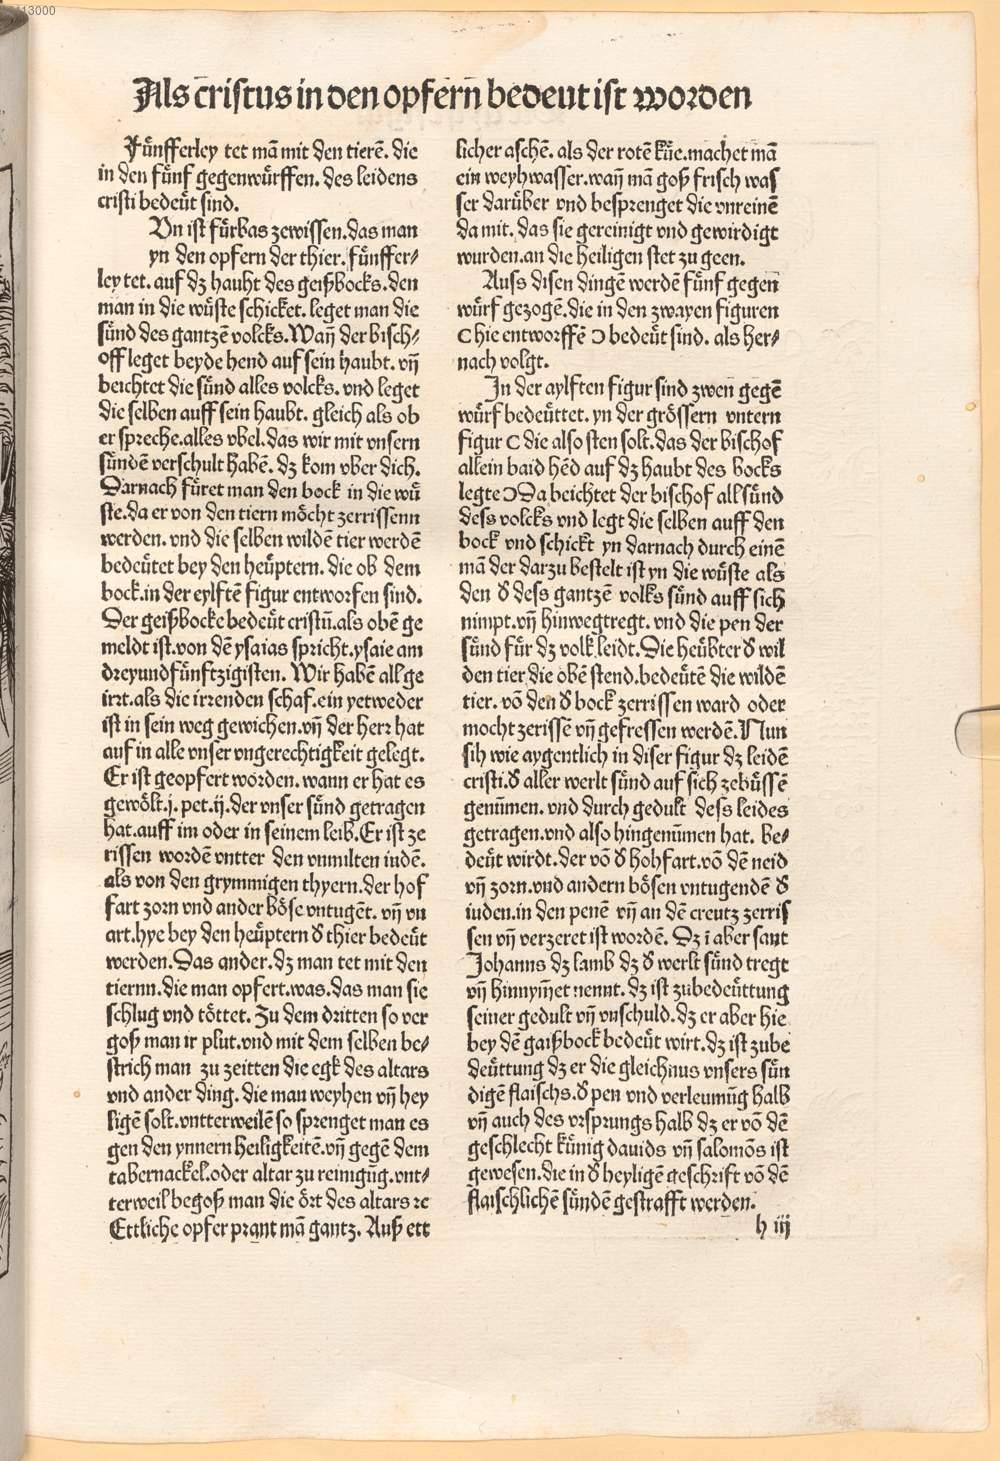 13000
Als c̄ristus in den opfern̄ bedeut ist worden
Fu̎nfferley tet mā mit den tierē. die
in den fu̎nf gegenwu̎rffen. des leidens
cristi bedeu̎t sind.
Vn ist fu̎rbas zewissen.das man
yn den opfern der thier. fu̎nffer⸗
ley tet. auf dz hauht des geißbocks.den
man in die wu̎ste schicket. leget man die
su̎nd des gantzē volcks. Wan̄ der bisch⸗
off leget beyde hend auf sein haubt. vn̄
beichtet die su̎nd alles volcks. vnd leget
die selben auff sein haubt. gleich als ob
er spreche.alles vbel.das wir mit vnsern
su̎ndē verschult habē. dz kom vber dich.
Darnach fu̎ret man den bock in die wu̎
ste.da er von den tiern mo̎cht zerrissenn
werden. vnd die selben wildē tier werdē
bedeu̎tet bey den heu̎ptern. die ob dem
bock.in der eylftē figur entworfen sind.
Der geißbocke bedeu̎t cristū.als obē ge
meldt ist.von dē ysaias spricht.ysaie am
dreyundfu̎nftzigisten. Wir habē all ge
irrt.als die irrenden schaf.ein yetweder
ist in sein weg gewichen.vn̄ der herr hat
auf in alle vnser vngerechtigkeit gelegt.
Er ist geopfert worden. wann er hat es
gewo̎lt.j. pet.ij.der vnser su̎nd getragen
hat.auff im oder in seinem leib.Er ist ze
rissen wordē vntter den vnmilten iudē.
als von den grymmigen thyern.der hof
fart zorn vnd ander bo̎se vntugēt. vn̄ vn
art.hye bey den heu̎ptern ꝺ thier bedeu̎t
werden.Das ander.dz man tet mit den
tiernn.die man opfert.was.das man sie
schlug vnd to̎ttet. Zu dem dritten so ver
goß man ir plut.vnd mit dem selben be⸗
strich man zu zeitten die egk des altars
vnd ander ding. die man weyhen vn̄ hey
ligē solt.vntterweilē so sprenget man es
gen den ynnern heiligkeitē.vn̄ gegē dem
tabernackel.oder altar zu reinigūg.vnt⸗
terweil begoß man die o̎rt des altars ꝛc
Ettliche opfer prant mā gantz. Auß ett
licher aschē. als der rotē ku̎e.machet mā
ein weyhwasser.wan̄ mā goß frisch was
ser daru̎ber vnd besprenget die vnreinē
da mit. das sie gereinigt vnd gewirdigt
wurden.an die heiligen stet zu geen.
Auss disen dingē werdē fu̎nf gegen
wu̎rf gezogē.die in den zwayen figuren
C hie entworffē Ɔ bedeu̎t sind. als her⸗
nach volgt.
In der aylften figur sind zwen gegē
wu̎rf bedeu̎ttet. yn der gro̎ssern vntern
figur C die also sten solt.das der bischof
allein baid hēd auf dz haubt des bocks
legte Ɔ Da beichtet der bischof all su̎nd
dess volcks vnd legt die selben auff den
bock vnd schickt yn darnach durch einē
mā der darzu bestelt ist yn die wu̎ste als
den ꝺ dess gantzē volks su̎nd auff sich
nimpt.vn̄ hinwegtregt. vnd die pen der
su̎nd fu̎r dz volk leidt. Die heu̎bter ꝺ wil
den tier die obē stend.bedeu̎tē die wildē
tier. vō den ꝺ bock zerrissen ward oder
mocht zerissē vn̄ gefressen werdē. Nun
sih wie aygentlich in diser figur dz leidē
cristi.ꝺ aller werlt su̎nd auf sich zebu̎ssē
genūmen. vnd durch gedult dess leides
getragen.vnd also hingenūmen hat. be⸗
deu̎t wirdt.der vō ꝺ hohfart.vō dē neid
vn̄ zorn.vnd andern bo̎sen vntugendē ꝺ
iuden.in den penē vn̄ an dē creutz zerris
sen vn̄ verzeret ist wordē. Dz ī aber sant
Johanns dz lamb dz ꝺ werlt su̎nd tregt
vn̄ hinnym̄et nennt. dz ist zubedeu̎ttung
seiner gedult vn̄ vnschuld.dz er aber hie
bey dē gaißbock bedeu̎t wirt.dz ist zube
deu̎ttung dz er die gleichnus vnsers su̎n
digē flaischs.ꝺ pen vnd verleumūg halb
vn̄ auch des vrsprungs halb dz er vō dē
geschlecht ku̎nig dauids vn̄ salomōs ist
gewesen.die in ꝺ heyligē geschrift vō dē
flaischlichē su̎ndē gestrafft werden.
h iij